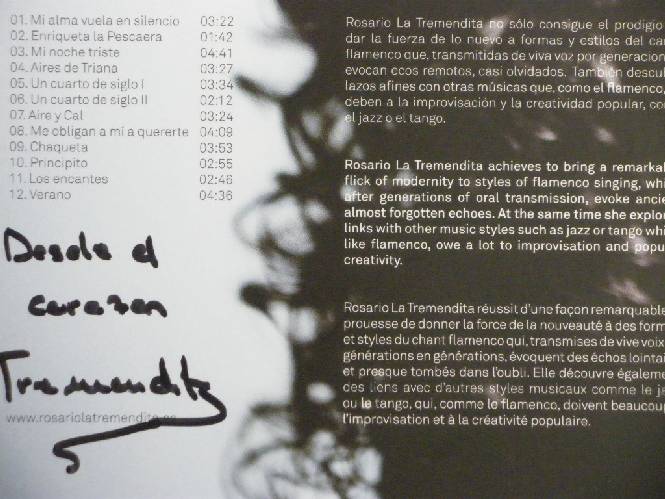 01. Mi alma vuela en silencio 03:22
02. Enriqueta la Pescaera 01:42
03. Mi noche triste 04:41
04. Aires de Triana 03:27
05. Un cuarto de siglo I 03:34
06. Un cuarto de siglo II 02:12
07. Aire y Cal 03:24
08. Me obligan a mi a quererte 04:09
09. Chaqueta 03:53
10. Principito 02:55
11. Los encantes 02:46
12. Verano 04:36
Desde el
corazon
Tremendita
www.rosariolatremendita.es
Rosario La Tremendita no sólo consigue el prodigio
dar la fuerza de lo nuevo a formas y estilos del
flamenco que, transmitidas de viva voz por
evocan ecos remotos, casi olvidados. También
lazos afines con otras músicas que, como el flamenco,
deben a la improvisación y la creatividad popular,
el jazz o el tango.
Rosario La Tremendita achieves to bring a
flick of modernity to styles of flamenco singing,
after generations of oral transmission, evoke
almost forgotten echoes. At the same time she
links with other music styles such as jazz or tango
like flamenco, owe a lot to improvisation and
creativity.
Rosario La Tremendita réussit d'une façon remarquable
prouesse de donner la force de la nouveauté à des
et styles du chant flamenco qui, transmises de vive voix
générations en générations, évoquent des échos
et presque tombés dans l'oubli. Elle découvre
des liens avec d'autres styles musicaux comme le
ou le tango, qui, comme le flamenco, doivent
l'improvisation et à la créativité populaire.